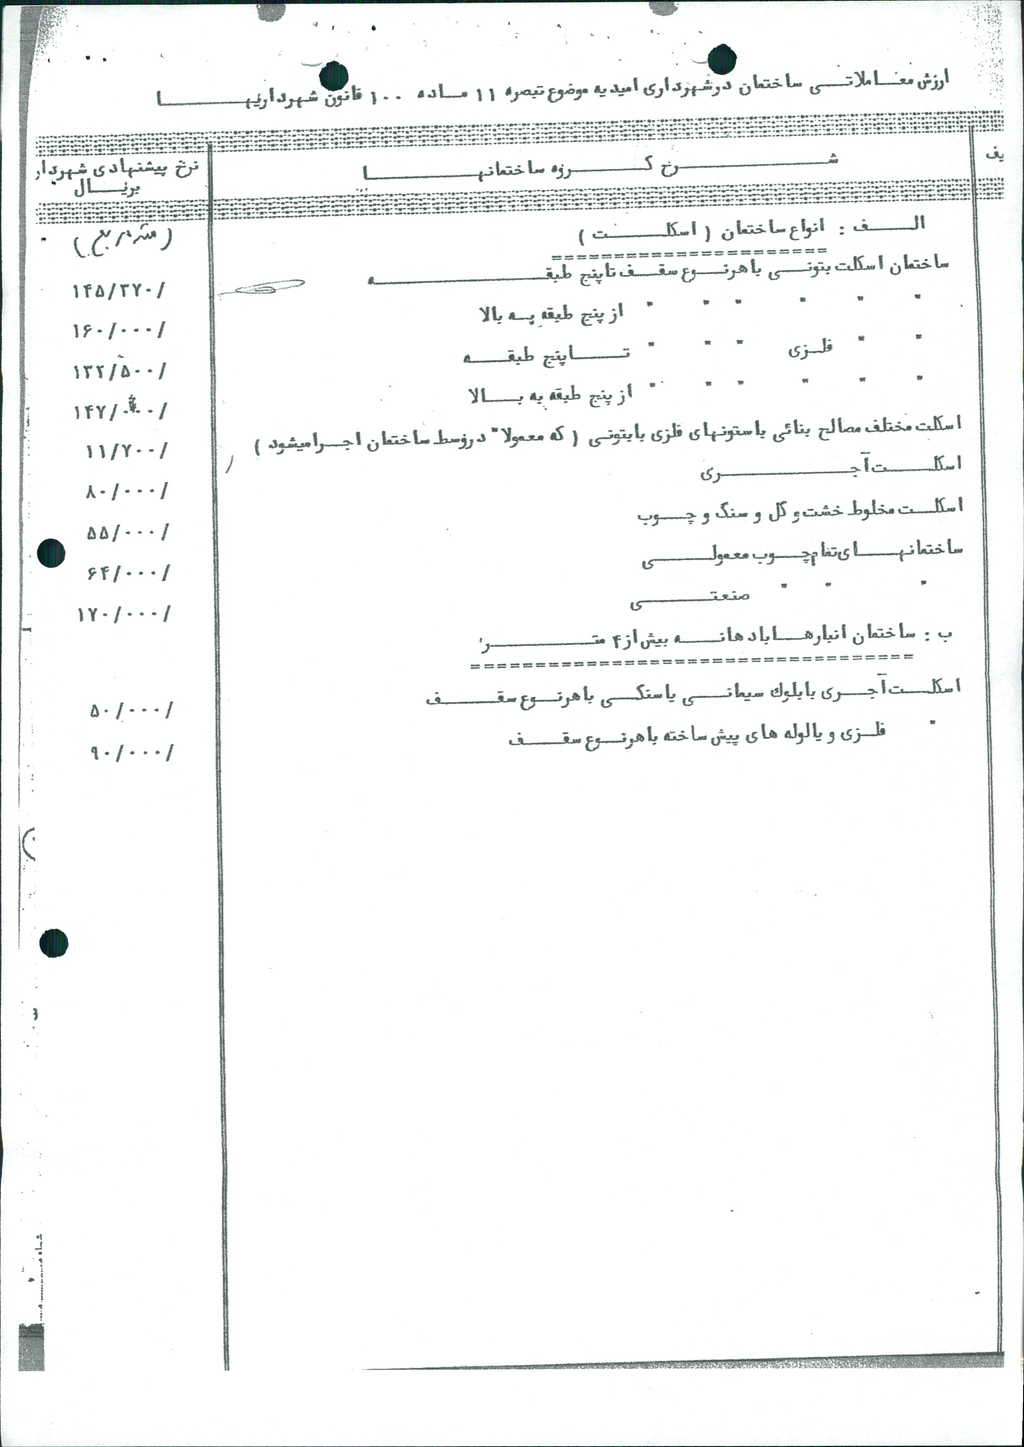 ارزش معاملاتی ساختمان در شهرداری امیدیه موضوع تبصره ۱۱ ماده ۱۰۰ قانون شهرداریها
یف
شرح گروه ساختمانها
نرخ پیشنهادی شهردار
بریال
الف : انواع ساختمان ( اسکلت )
( متر مربع )
ساختمان اسکلت بتونی با هر نوع سقف تا پنج طبقه ۱۴۵/۲۷۰/
" " " " " " از پنج طبقه به بالا ۱۶۰/۰۰۰/
" " فلزی " " " تا پنج طبقه ۱۳۲/۵۰۰/
" " " " " " از پنج طبقه به بالا ۱۴۷/۰۰۰/
اسکلت مختلف مصالح بنائی با ستونهای فلزی یا بتونی ( که معمولا" در وسط ساختمان اجرا میشود ) ۱۱/۷۰۰/
اسکلت آجری ۸۰/۰۰۰/
اسکلت مخلوط خشت و گل و سنگ و چوب ۵۵/۰۰۰/
ساختمانهای تمام چوب معمولی ۶۴/۰۰۰/
" " " صنعتی ۱۷۰/۰۰۰/
ب : ساختمان انبارها با دهانه بیش از ۴ متر
اسکلت آجری یا بلوك سیمانی یا سنگی با هر نوع سقف ۵۰/۰۰۰/
" فلزی و یا لوله های پیش ساخته با هر نوع سقف ۹۰/۰۰۰/